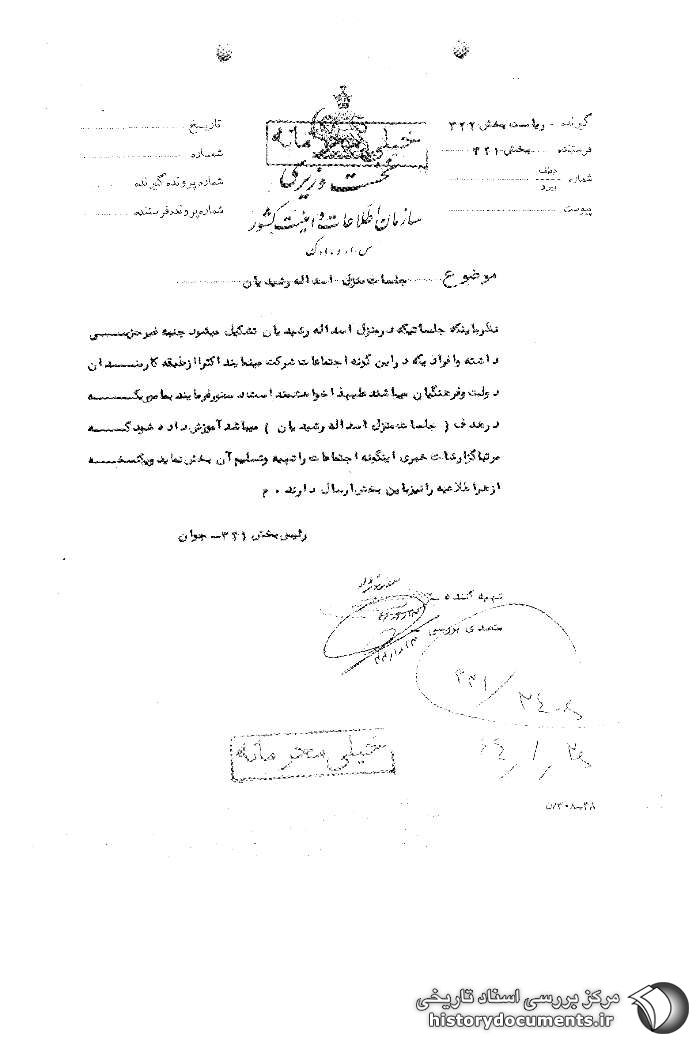 گیرنده - ریاست بخش ۳۲۲
فرستنده بخش ۳۲۱
شماره عطف پیرو
پیوست
خیلی محرمانه
نخست وزیری
سازمان اطلاعات و امنیت کشور
س . ا . و . ا . ک
تاریخ
شماره
شماره پرونده گیرنده
شماره پرونده فرستنده
موضوع جلسات منزل اسداله رشیدیان
نظرباینکه جلساتیکه درمنزل اسداله رشیدیان تشکیل میشود جنبه غیرحزبی
داشته وافرادیکه دراین گونه اجتماعات شرکت مینمایند اکثرا ازطبقه کارمندان
دولت وفرهنگیان میباشند علیهذا خواهشمند است دستورفرمایند بمامریکه
درهدف ( جلسات منزل اسداله رشیدیان ) میباشد آموزش داده شود که
مرتبا گزارشات خبری اینگونه اجتماعات راتهیه وتسلیم آن بخش نماید ویکنسخه
ازهراطلاعیه رانیزباین بخش ارسال دارند . م
رئیس بخش ۳۲۱ - جوان
تهیه کننده
متصدی بررسی
۳۲۱/
خیلی محرمانه
مرکز بررسی اسناد تاریخی
historydocuments.ir